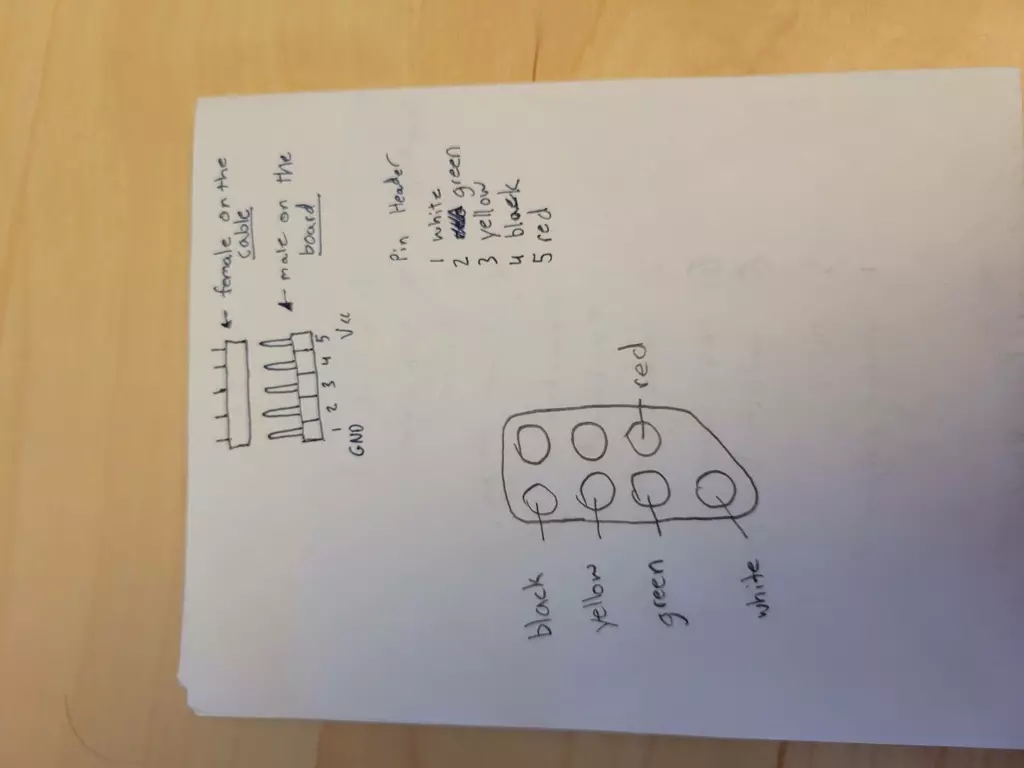 ← female on the
cable
← male on the
board
1 2 3 4 5
GND Vcc
Pin Header
1 white
2 green
3 yellow
4 black
5 red
red
black
yellow
green
white